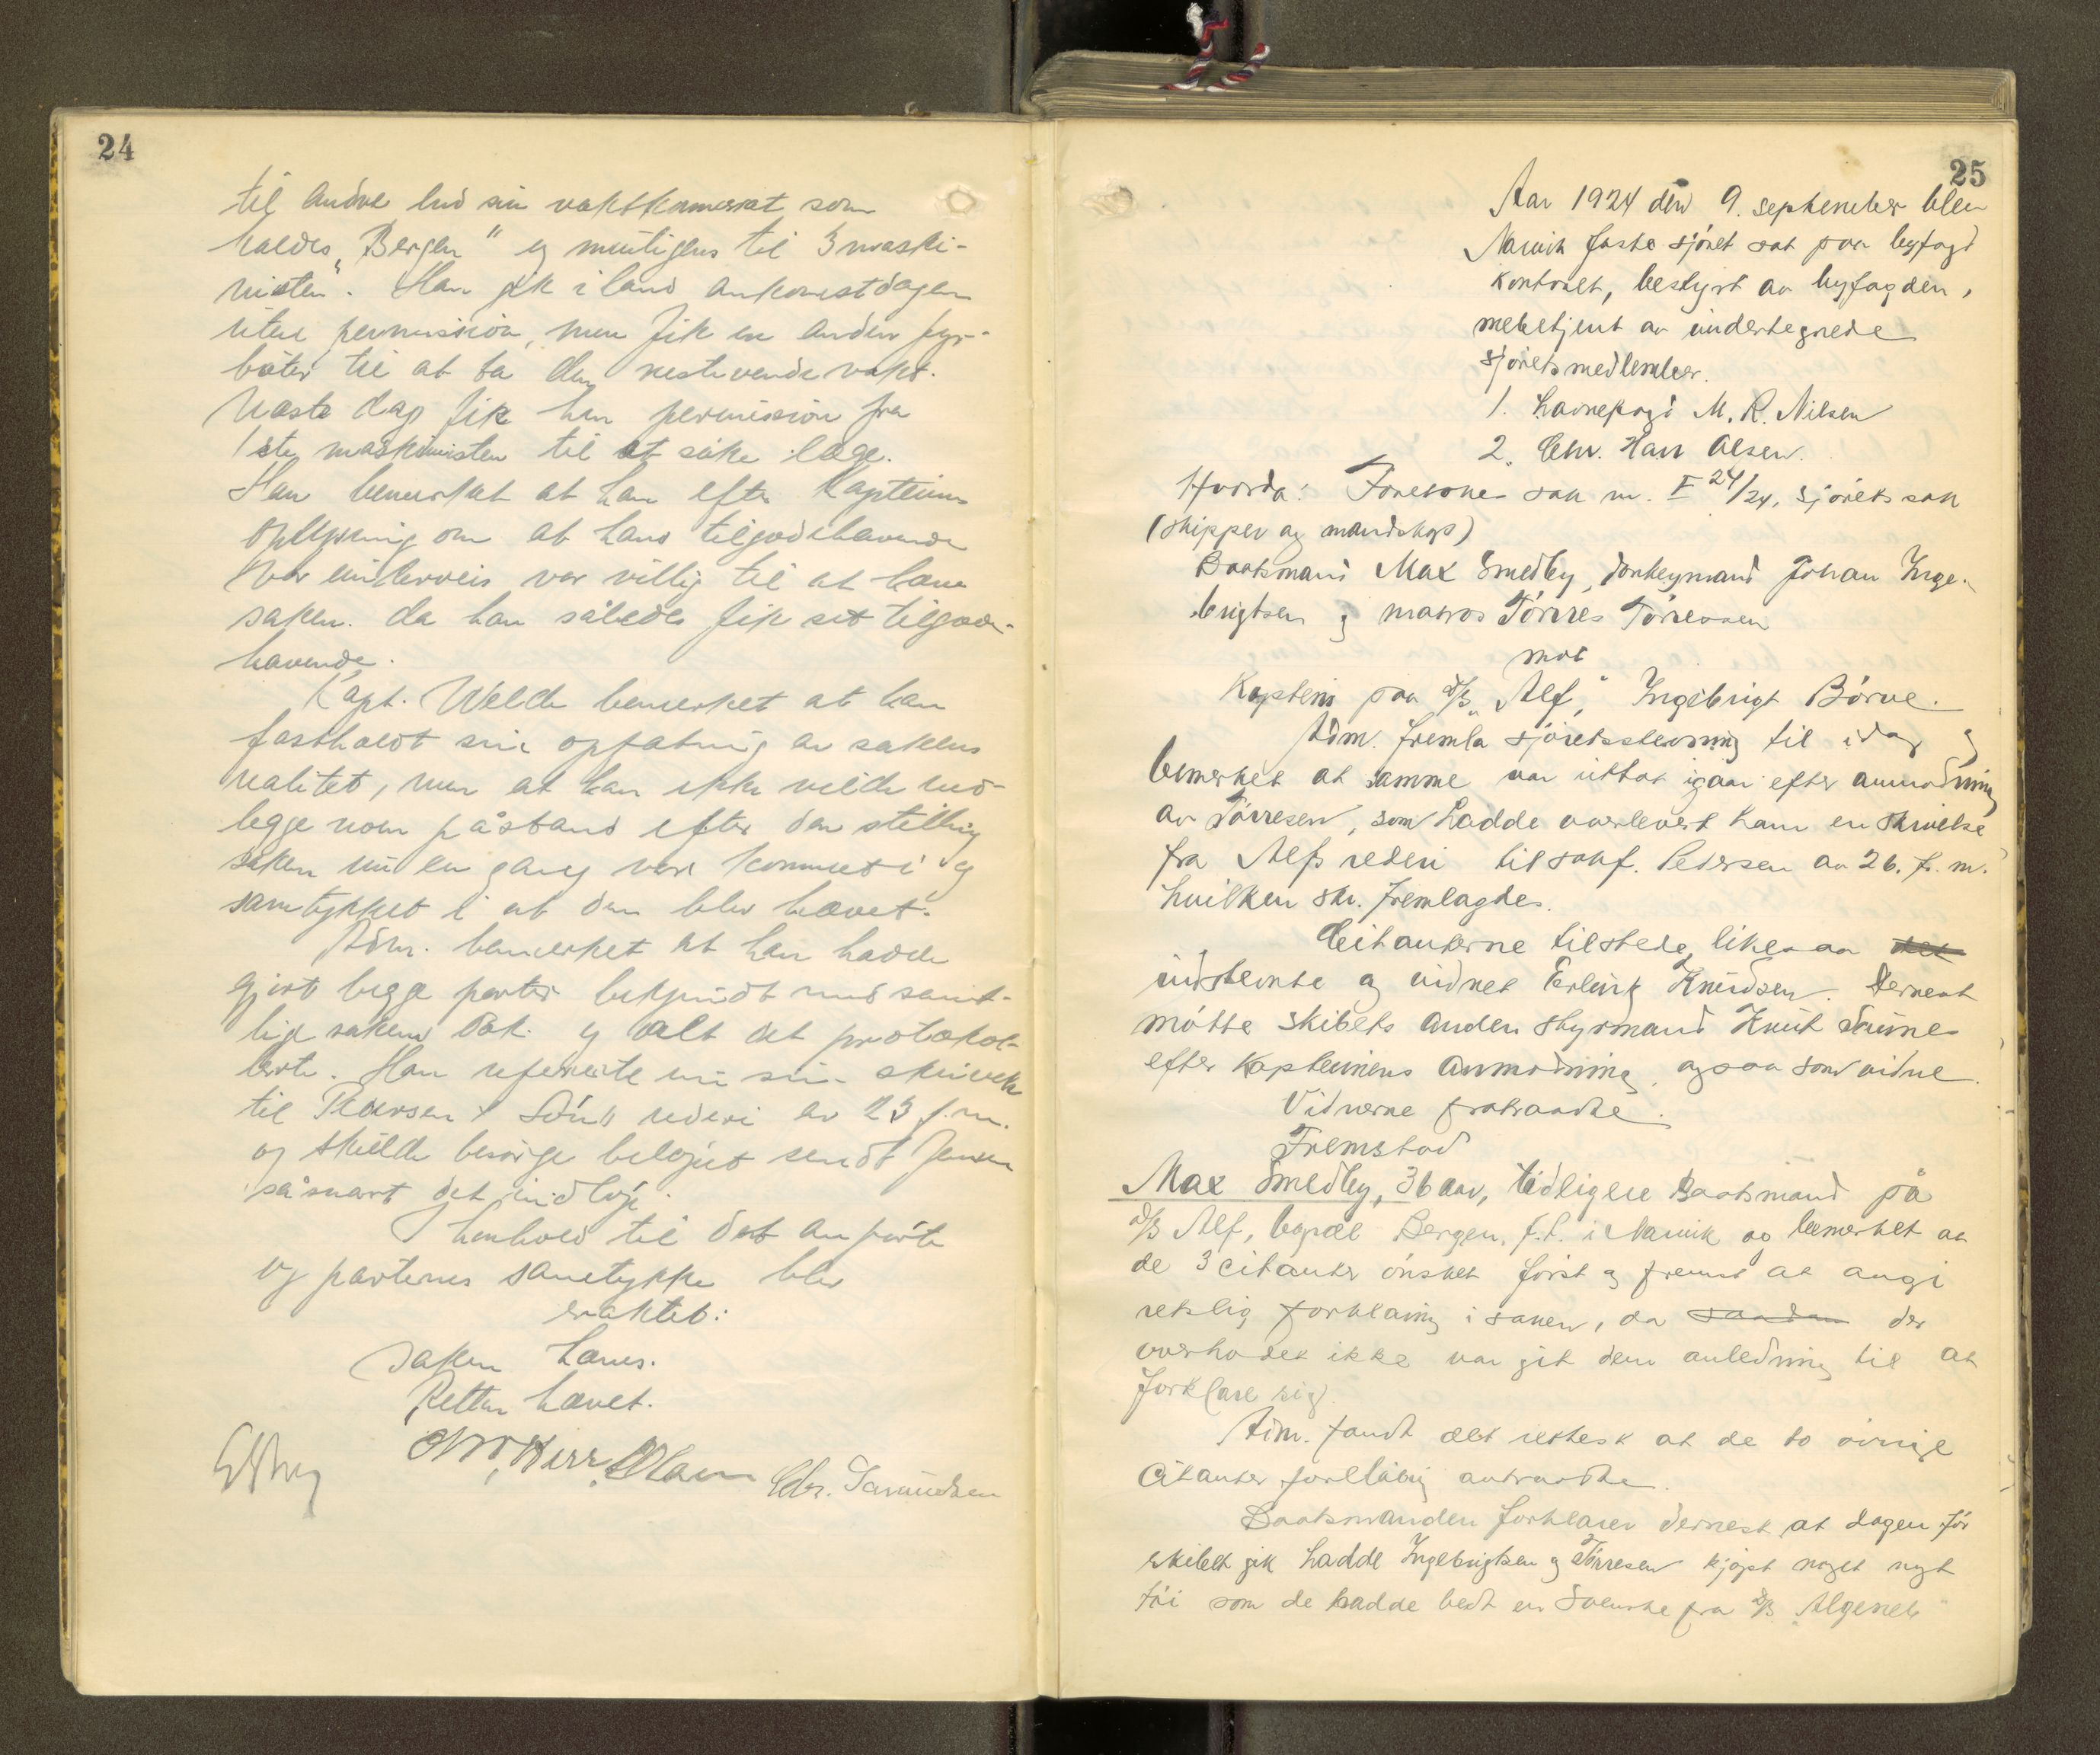 24
til andre end sin vaktkamerat som
kaldes „Bergen" og muligens til 3 maski-
nisten". Han gik i land ankomstdagen
uten permission, men fik en anden fyr-
böter til at ta den nestevende vakt.
Næste dag fik han permission fra
1ste maskinisten til at söke læge.
Han bemerket at han efter kapteinens
oplysning om at hans tilgodehavende
var underveis var villig til at hæve
saken da han således fik sit tilgode-
havende.
Kapt. Welde bemerket at han
fastholdt sin opfatning av sakens
realitet, men at han ikke vilde ned-
legge noen påstand efter den stilling
saken nu en gang var kommet i og
samtykket i at den blev hævet.
Adm. bemerket at han hadde
gjort begge parter bekjendt med samt-
lige sakens dok. og alt det protokol-
lerte. Han refererte nu sin skrivelse
til Pedersen & Söns rederi av 23 f.m.
og skulde besörge belöpet sendt Jensen
såsnart det indlöp.
I henhold til det anförte
og parternes samtykke blev
eragtet:
Saken hæves.
Retten hævet.
Chr. Samuelsen
25
Aar 1924 den 9. september blev
Narvik faste sjöret sat paa byfogd
kontoret, bestyrt av byfogden,
mebetjent av undertegnede
sjöretsmedlemmer.
1. Havnefogd M. R. Nilsen
2. Chr. Han Olsen.
Hvorda: Foretokes sak nr. I 24/24, sjörets sak
(skipper og mandskap)
Baatsmand Max Smedby, donkeymand Johan Inge-
brigtsen og matros Törres Törresen
mot
Kaptein paa d/s „Alf", Ingebrigt Börve.
Adm. fremla sjöretsstevning til idag og
bemerket at samme var uttat igaar efter anmodning
av Törresen, som hadde overlevert ham en skrivelse
fra Alfs rederi til sakf. Pedersen av 26. f. m.
hvilken skr. fremlagdes.
Citanterne tilstede, likesaa det
indstevnte og vidnet Erling Knudsen. Dernest
mötte skibets anden styrmand Knut Sunne
efter kapteinens anmodning, ogsaa som vidne.
Vidnerne fratraadte.
Fremstod
Max Smedby, 36 aar, tidligere Baatsmand på
d/s Alf, bopæl Bergen, f.t. i Narvik og bemerket at
de 3 citanter önsket först og fremst at avgi
retslig forklaring i saken, da saadan der
overhodet ikke var git dem anledning til at
forklare sig.
Adm. fandt det rettest at de to övrige
citanter forelöbig fratraadte.
Baatsmanden forklarer dernest at dagen för
skibet gik hadde Ingebrigtsen og Törresen kjöpt noget nyt
töi som de hadde bedt en svenske fra d/s „Algenets